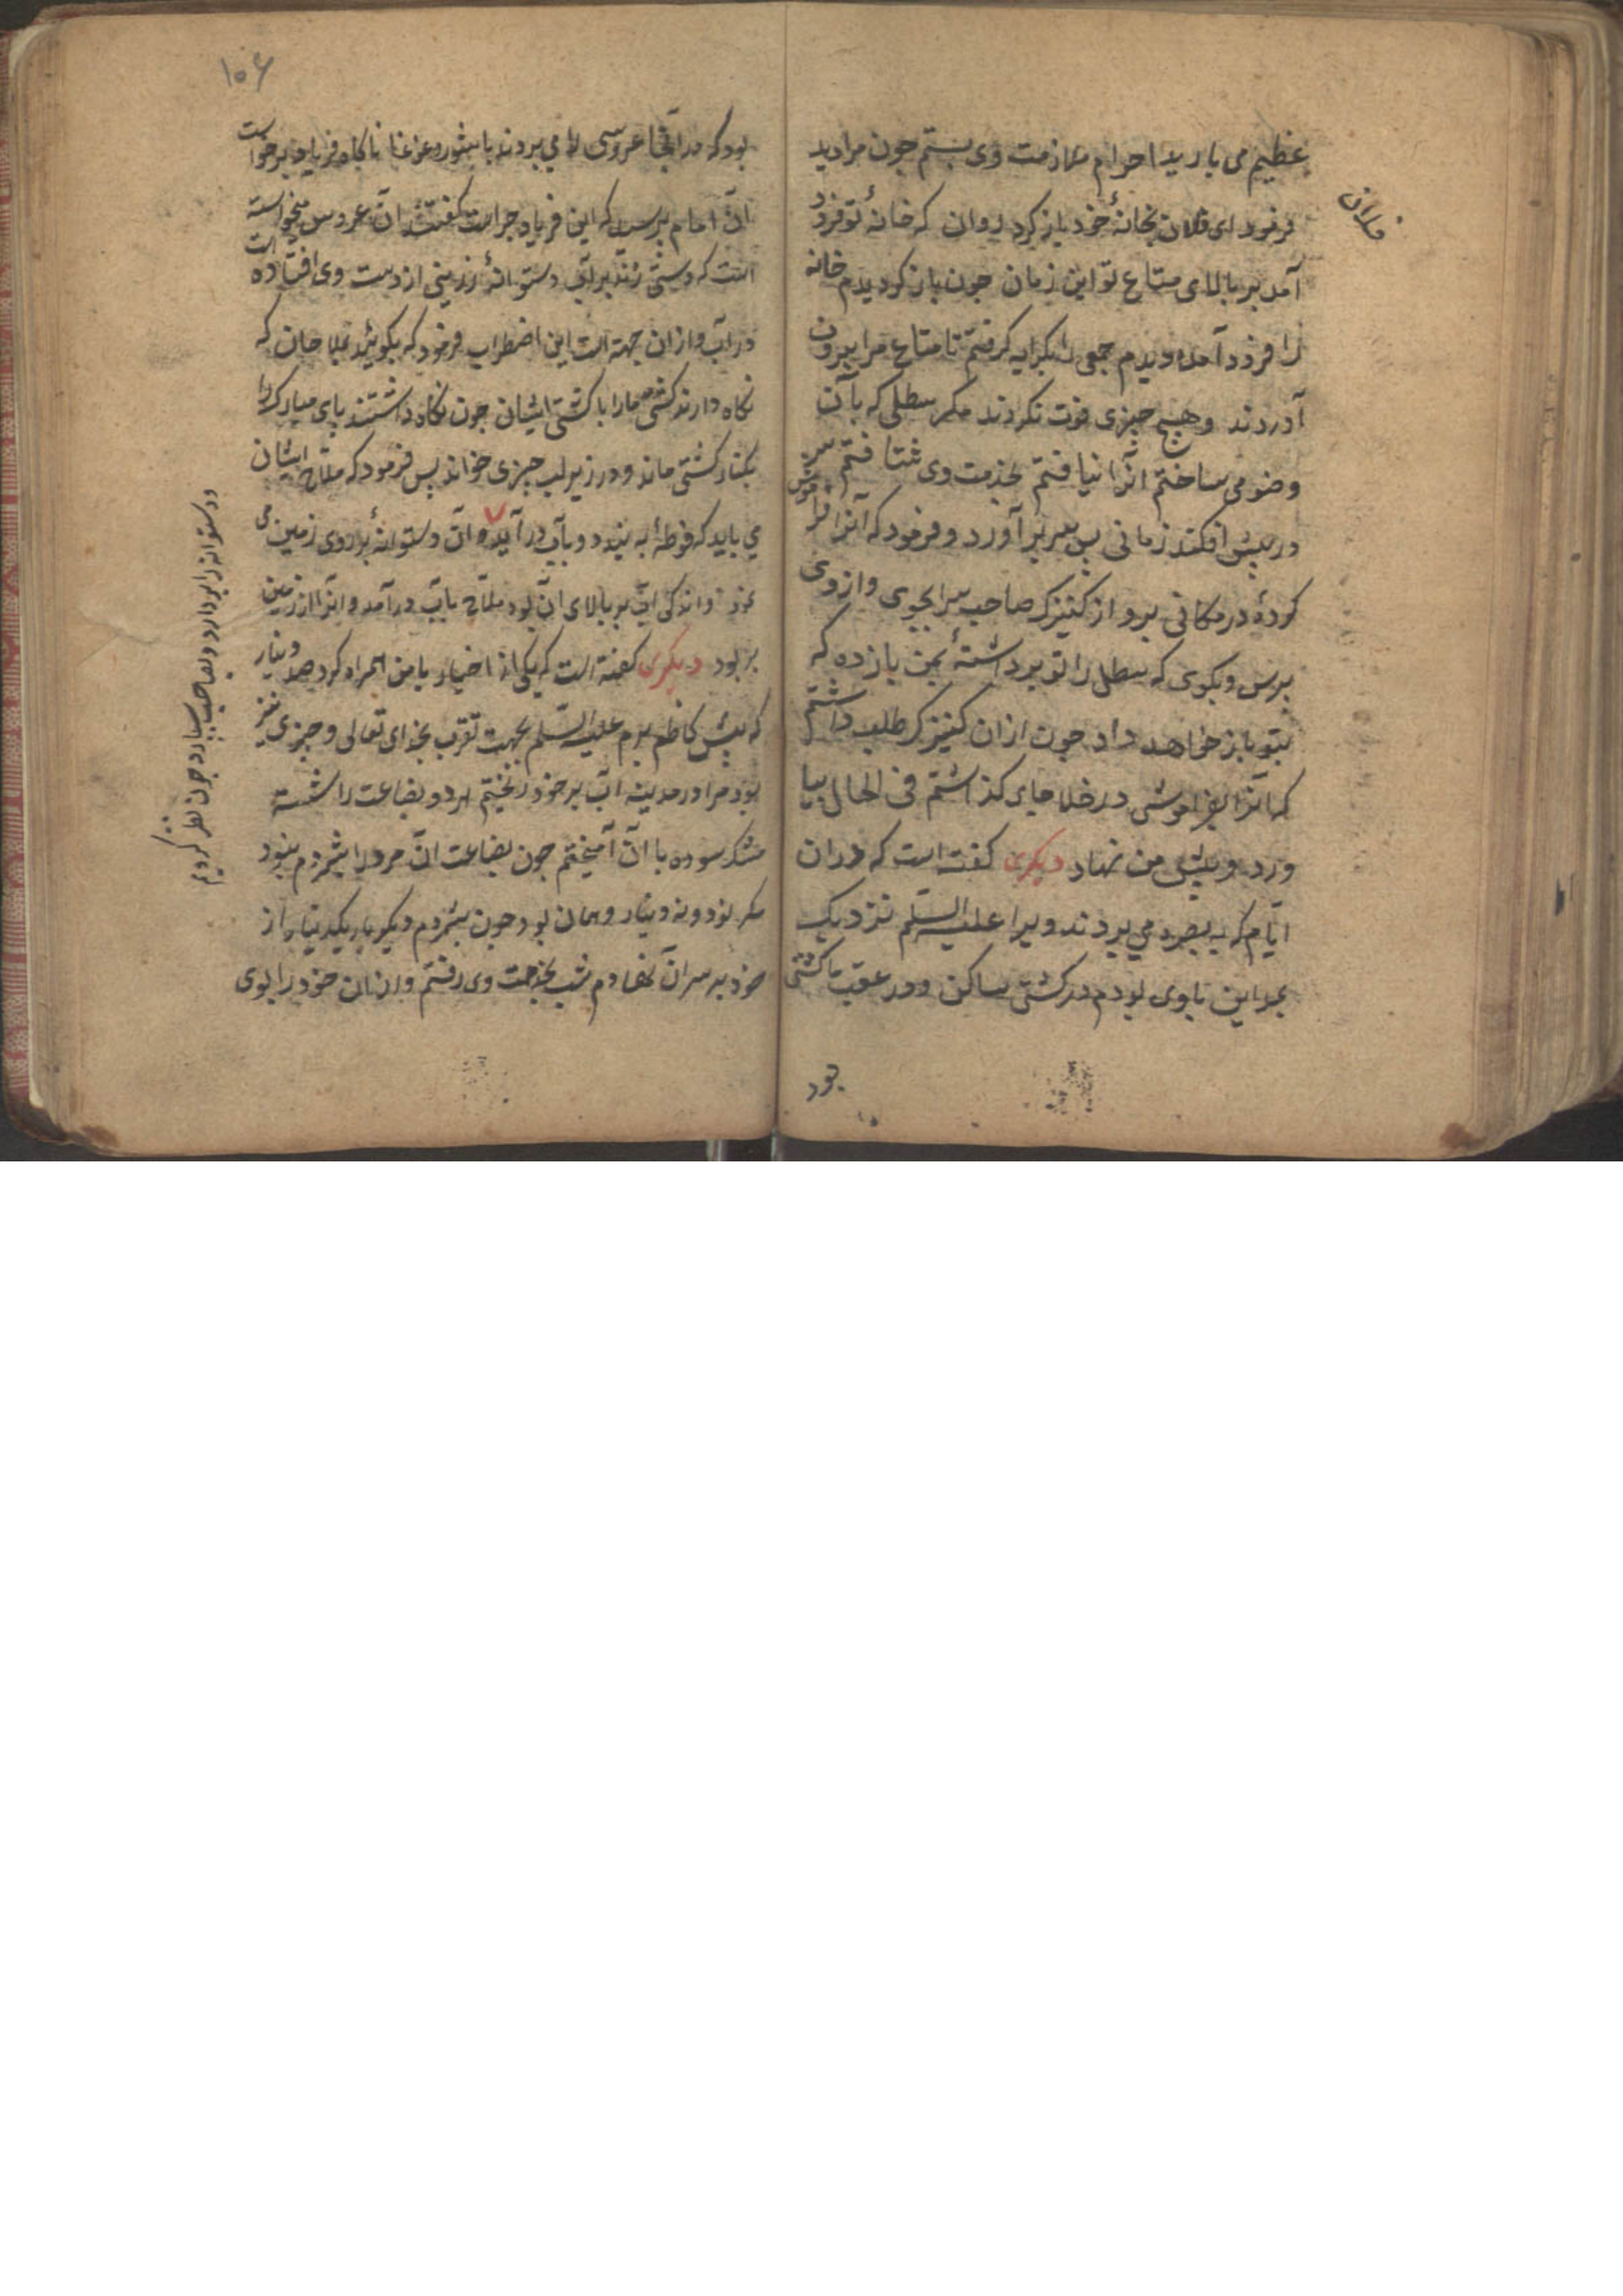 عظیم می بارید احرام ملازمت وی بستم جون مرا دید
فرمود ای فلان بخانهٔ خود باز کرد روان که خانهٔ تو فرود
آمد بر بالای متاع تو این زمان جون باز کردیدم خانه
را فرود آمده دیدم جمعی را بکرایه کرفتم تا متاع مرا بیرون
آوردند وهیچ جیزی فوت نکردند مکر سطلی که بآن
وضو می ساختم آنرا نیافتم بخدمت وی شتافتم سر
در پیش افکند زمانی پس سر بر آورد وفرمود که آنرا فراموش
کردهٔ در مکانی برو از کنیزک صاحب سرا بجوی وازوی
بپرس وبکوی که سطل را تو برداشتهٔ بمن باز ده که
بتو باز خواهد داد جون ازان کنیزک طلب داشتم
که آنرا بفراموشی در خلا جای کذاشتم فی الحال بیا
ورد وپیش من نهاد دیکری کفته است که دران
ایام که به بصره می بردند ویرا علیه السلم نزدیک
مداین با وی بودم در کشتی ساکن ودر عقب ما کشتی
بود
۱۰۶
بود که در آنجا عروسی را می بردند با شور وغوغا ناکاه فریاد برخواست
آن امام پرسید که این فریاد جراست کفتند آن عروس میخواسته
است که دستی زند بر آب دستوانهٔ زرینی از دست وی افتاده است
در آب وازان جهت است این اضطراب فرمود که بکوئید ملاحان که
نکاه دارند کشتی مارا با کشتی ایشان جون نکاه داشتند پای مبارک را
بکنار کشتی ماند ودر زیر لب جیزی خواند پس فرمود که ملاح ایشان
می باید که فوطهٔ به بندد وبآب در آید و آن دستوانهٔ بر روی زمین می
واندکی آب بر بالای آن بود ملاح بآب در آمد وآنرا از زمین
بر بود دیکری کفته است که یکی از اخیار با من همراه کرد صد دینار
که پیش کاظم برم علیه السلم بجهت تقرب بخدای تعالی وجیزی نیز
بود مرا در مدینه آب بر خود ریختم هر دو بضاعت را شسته
مشک سوده با آن آمیختم جون بضاعت آن مرد را شمردم نبود
مکر نود ونه دینار وهمان بود جون بشمردم دیکر بار یکدینار از
خود بر سر آن نهادم شب بخدمت وی رفتم وازان خود را بوی
دستوانه را بردارد وبصاحب سپارد جون نظر کردیم